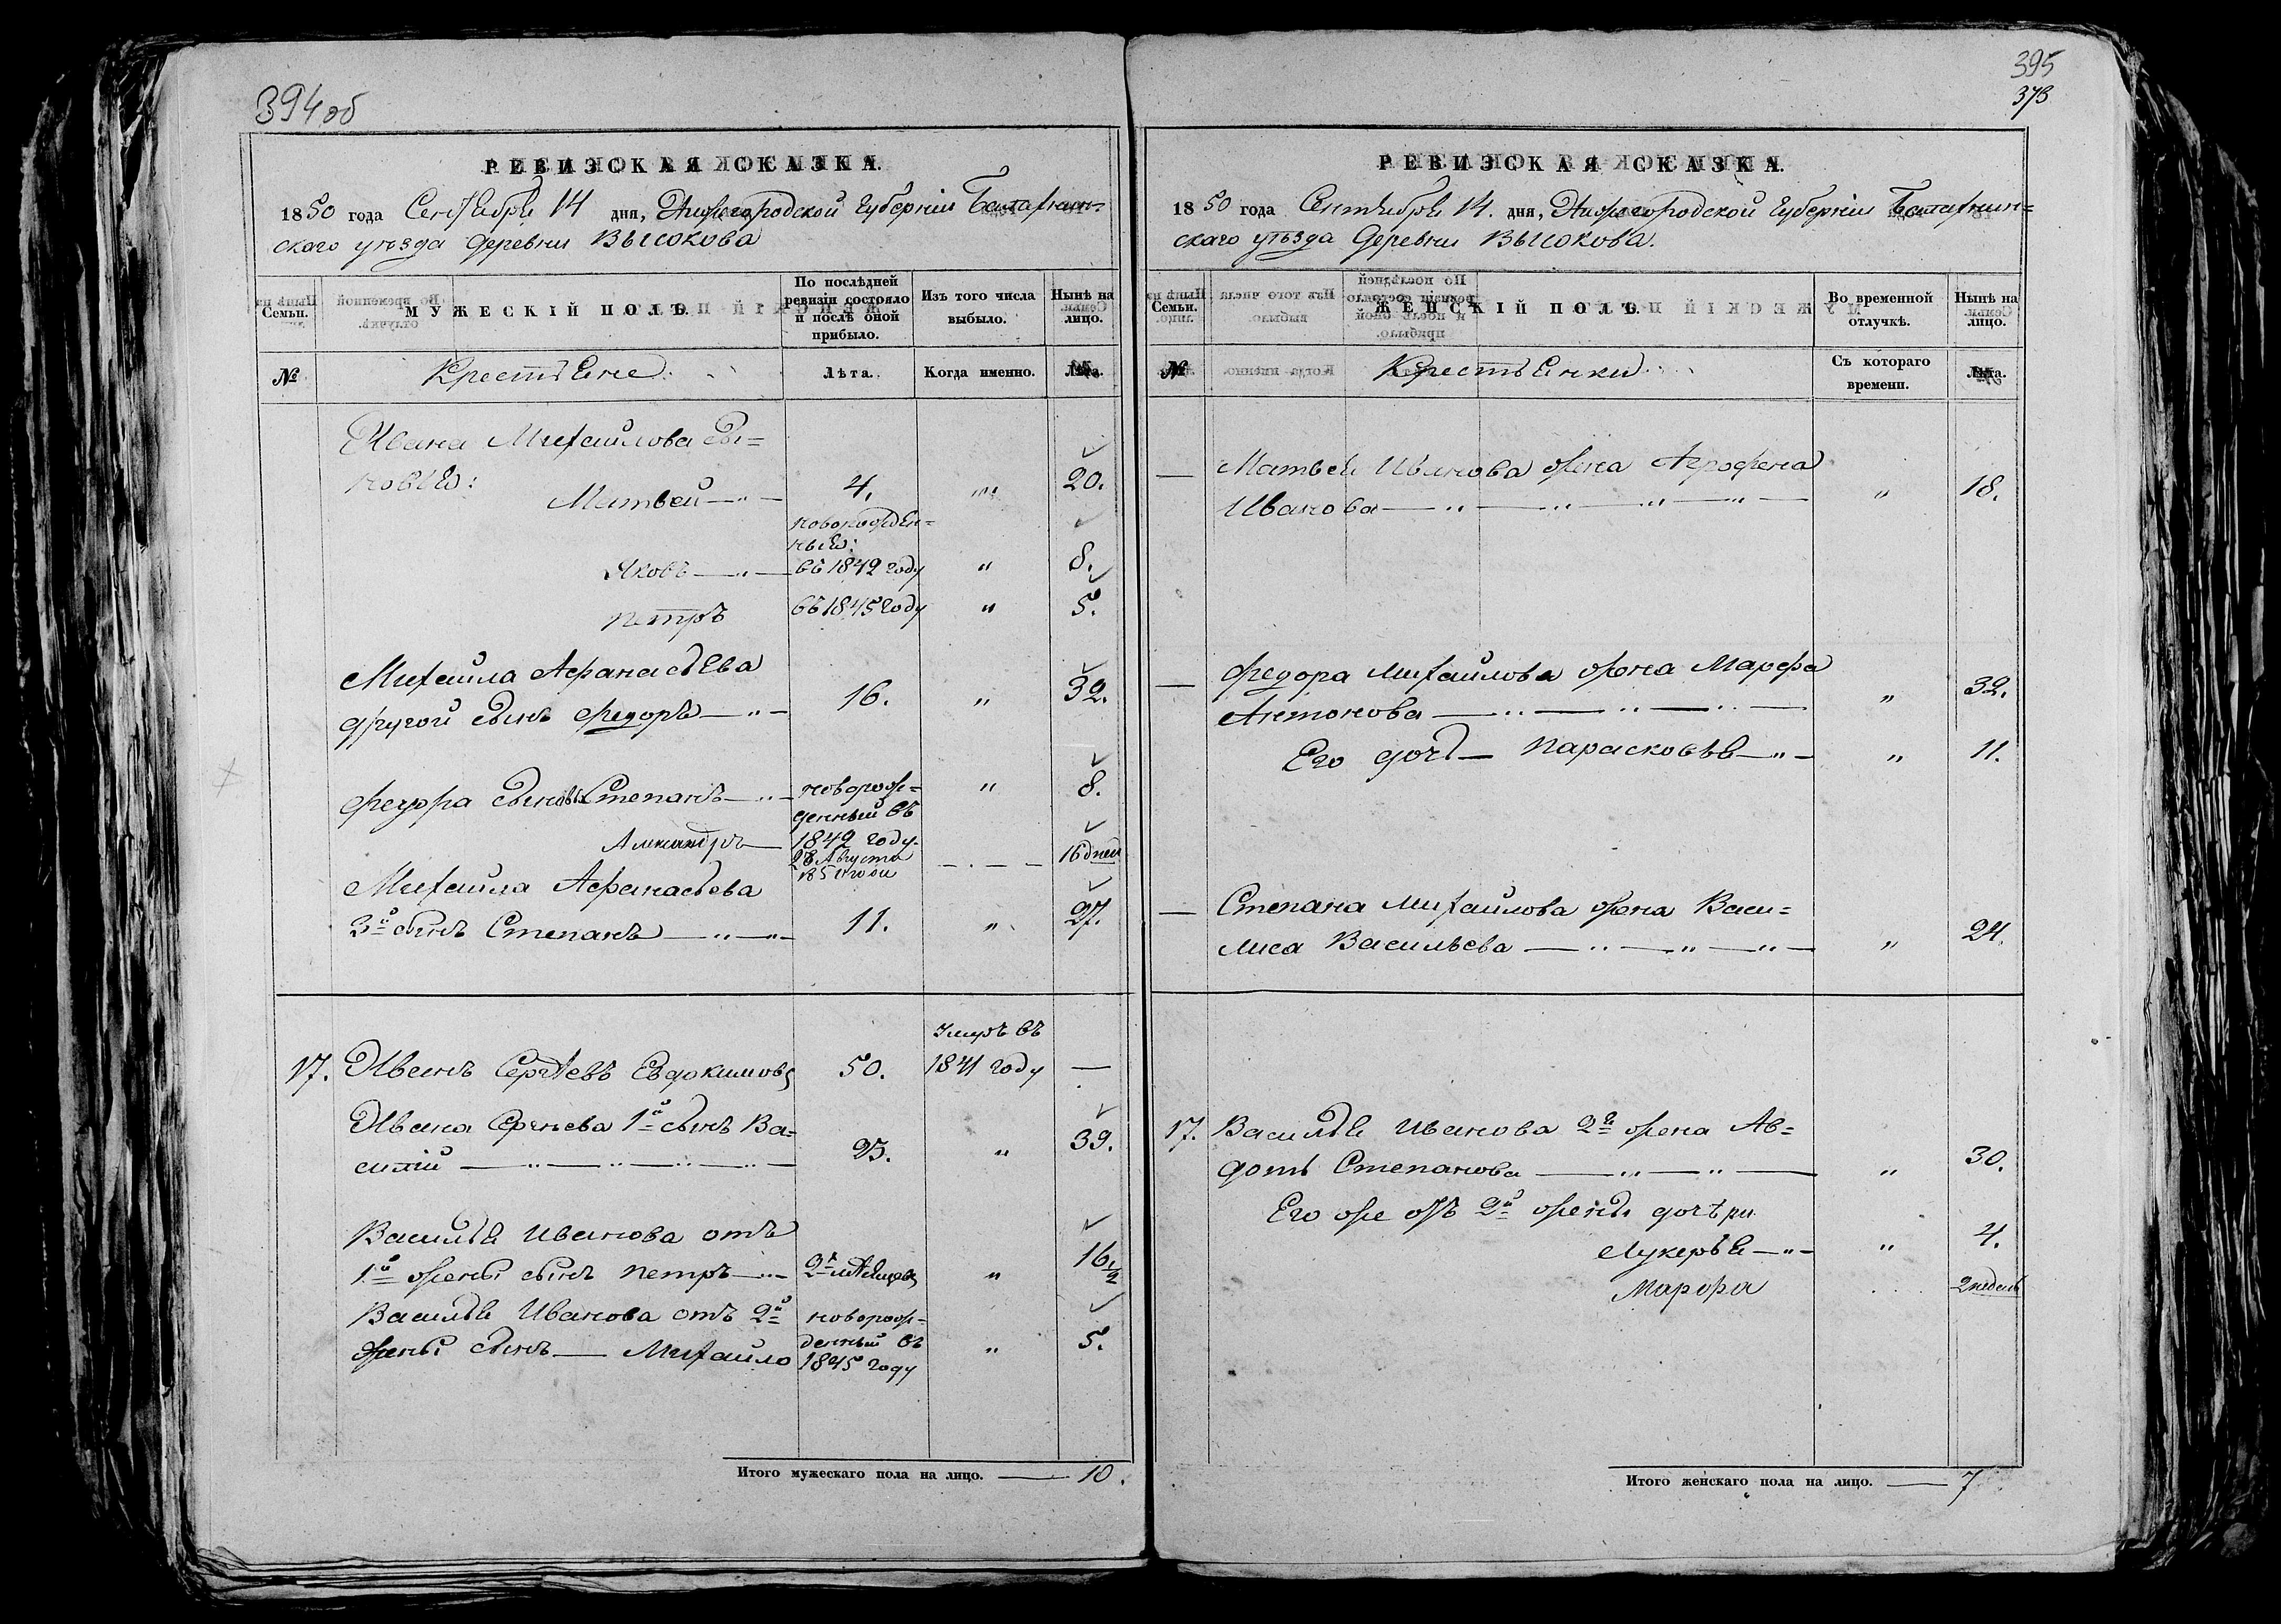 394 об
РЕВИЗСКАЯ СКАЗКА.
1850 года Сентября 14 дня, Нижегородской Губернiи Балахнин-
скаго уѣзда деревни Высокова
Семьи.
МУЖЕСКIЙ ПОЛЪ.
По послѣдней ревизiи состояло и послѣ оной прибыло.
Изъ того числа выбыло.
Нынѣ на лицо.
№
Крестьяне.
Лѣта.
Когда именно.
Лѣта.
Ивана Михайлова сы=
новья:
Матвей 4. „ 20.
новорожден=
ные:
Яковъ въ 1842 году „ 8.
Петръ въ 1845 году „ 5.
Михайла Афанасьева
другой сынъ Федоръ 16. „ 32.
Федора сыновья Степанъ новорож=
денный въ
1842 году. „ 8.
Александръ 28 Августа
1850 года 16 дней
Михайла Афанасьева
3й сынъ Степанъ 11. „ 27.
17. Иванъ Сергѣевъ Евдокимовъ 50. Умръ въ
1841 году —
Ивана Сергѣева 1й сынъ Ва=
силiй 23. „ 39.
Василья Иванова отъ
1й жены сынъ Петръ 2х мѣсяцевъ „ 16 1/2
Василья Иванова отъ 2й
жены сынъ — Михайло новорож=
денный въ
1845 году „ 5.
Итого мужескаго пола на лицо. — 10.
395
373
РЕВИЗСКАЯ СКАЗКА.
1850 года Сентября 14. дня, Нижегородской Губернiи Балахнин=
скаго уѣзда деревни Высокова.
Семьи.
ЖЕНСКIЙ ПОЛЪ.
Во временной отлучкѣ.
Нынѣ на лицо.
№
Крестьянки
Съ котораго времени.
Лѣта.
— Матвея Иванова жена Агрофена
Иванова „ 18.
— Федора Михайлова жена Марфа
Антонова „ 32.
Его дочь — Парасковья „ 11.
— Степана Михайлова жена Васи=
лиса Васильева „ 24.
17. Василья Иванова 2я жена Ав=
дотья Степанова „ 30.
Его же отъ 2й жены дочѣри
Лукерья „ 4.
Марфа 2 недель
Итого женскаго пола на лицо. — 7